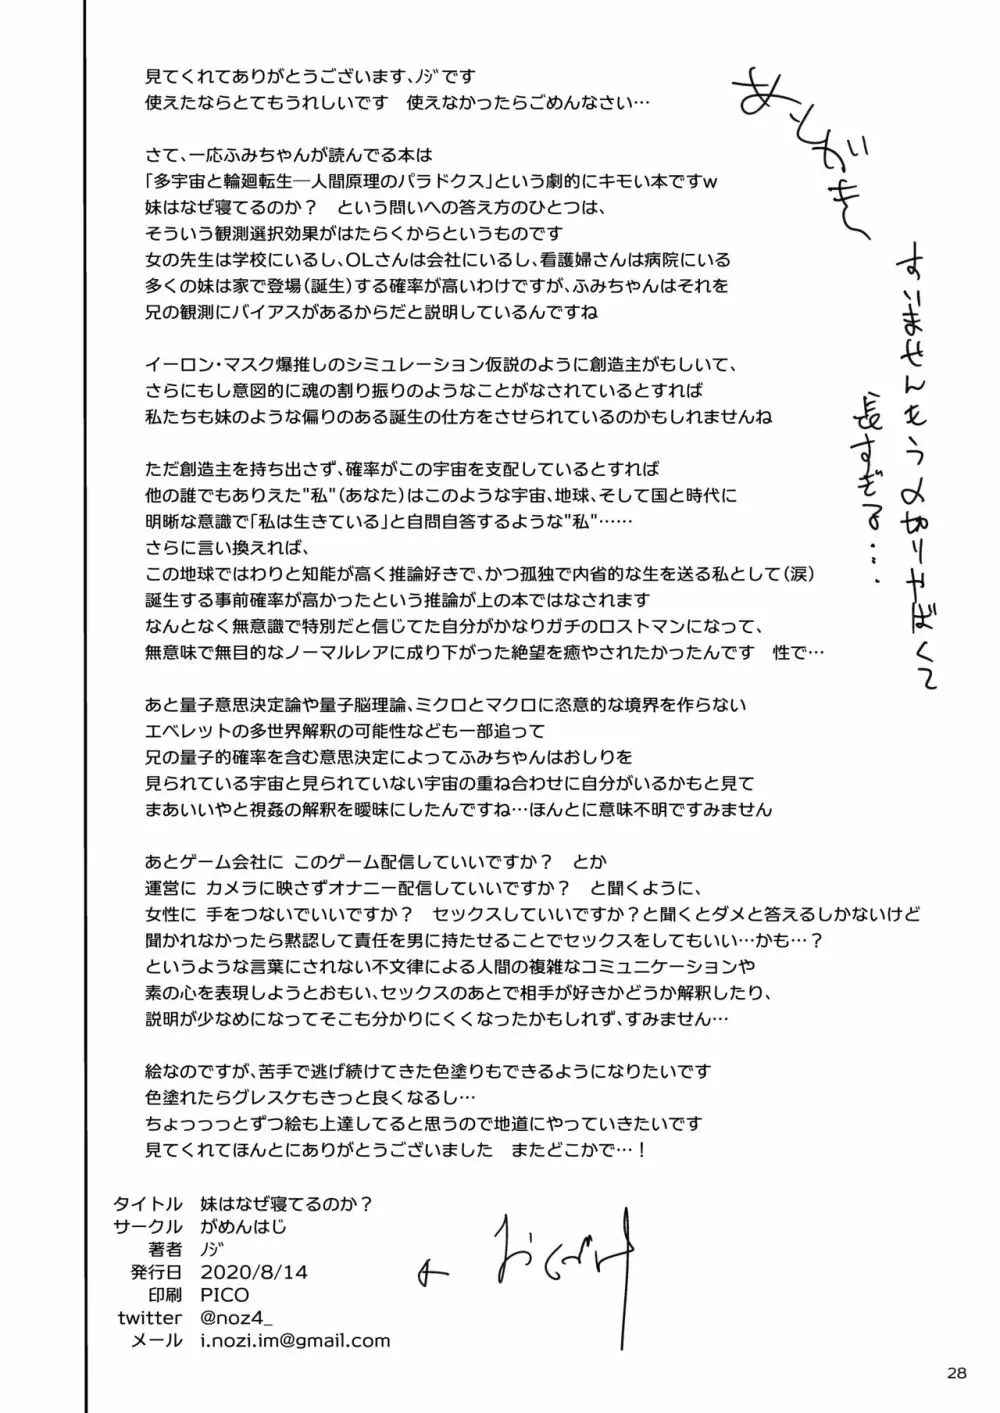 あとがき
すいません もう〆切りやばくて
長すぎる…
見てくれてありがとうございます、ﾉｼﾞです
使えたならとてもうれしいです　使えなかったらごめんなさい…
さて、一応ふみちゃんが読んでる本は
「多宇宙と輪廻転生―人間原理のパラドクス」という劇的にキモい本ですw
妹はなぜ寝てるのか？　という問いへの答え方のひとつは、
そういう観測選択効果がはたらくからというものです
女の先生は学校にいるし、OLさんは会社にいるし、看護婦さんは病院にいる
多くの妹は家で登場（誕生）する確率が高いわけですが、ふみちゃんはそれを
兄の観測にバイアスがあるからだと説明しているんですね
イーロン・マスク爆推しのシミュレーション仮説のように創造主がもしいて、
さらにもし意図的に魂の割り振りのようなことがなされているとすれば
私たちも妹のような偏りのある誕生の仕方をさせられているのかもしれませんね
ただ創造主を持ち出さず、確率がこの宇宙を支配しているとすれば
他の誰でもありえた"私"（あなた）はこのような宇宙、地球、そして国と時代に
明晰な意識で「私は生きている」と自問自答するような"私"……
さらに言い換えれば、
この地球ではわりと知能が高く推論好きで、かつ孤独で内省的な生を送る私として（涙）
誕生する事前確率が高かったという推論が上の本ではなされます
なんとなく無意識で特別だと信じてた自分がかなりガチのロストマンになって、
無意味で無目的なノーマルレアに成り下がった絶望を癒やされたかったんです　性で…
あと量子意思決定論や量子脳理論、ミクロとマクロに恣意的な境界を作らない
エベレットの多世界解釈の可能性なども一部追って
兄の量子的確率を含む意思決定によってふみちゃんはおしりを
見られている宇宙と見られていない宇宙の重ね合わせに自分がいるかもと見て
まあいいやと視姦の解釈を曖昧にしたんですね…ほんとに意味不明ですみません
あとゲーム会社に このゲーム配信していいですか？　とか
運営に カメラに映さずオナニー配信していいですか？　と聞くように、
女性に 手をつないでいいですか？　セックスしていいですか？と聞くとダメと答えるしかないけど
聞かれなかったら黙認して責任を男に持たせることでセックスをしてもいい…かも…？
というような言葉にされない不文律による人間の複雑なコミュニケーションや
素の心を表現しようとおもい、セックスのあとで相手が好きかどうか解釈したり、
説明が少なめになってそこも分かりにくくなったかもしれず、すみません…
絵なのですが、苦手で逃げ続けてきた色塗りもできるようになりたいです
色塗れたらグレスケもきっと良くなるし…
ちょっっっとずつ絵も上達してると思うので地道にやっていきたいです
見てくれてほんとにありがとうございました　またどこかで…！
タイトル　妹はなぜ寝てるのか？
サークル　がめんはじ
著者　ﾉｼﾞ
発行日　2020/8/14
印刷　PICO
twitter　@noz4_
メール　i.nozi.im@gmail.com
←おくづけ
28